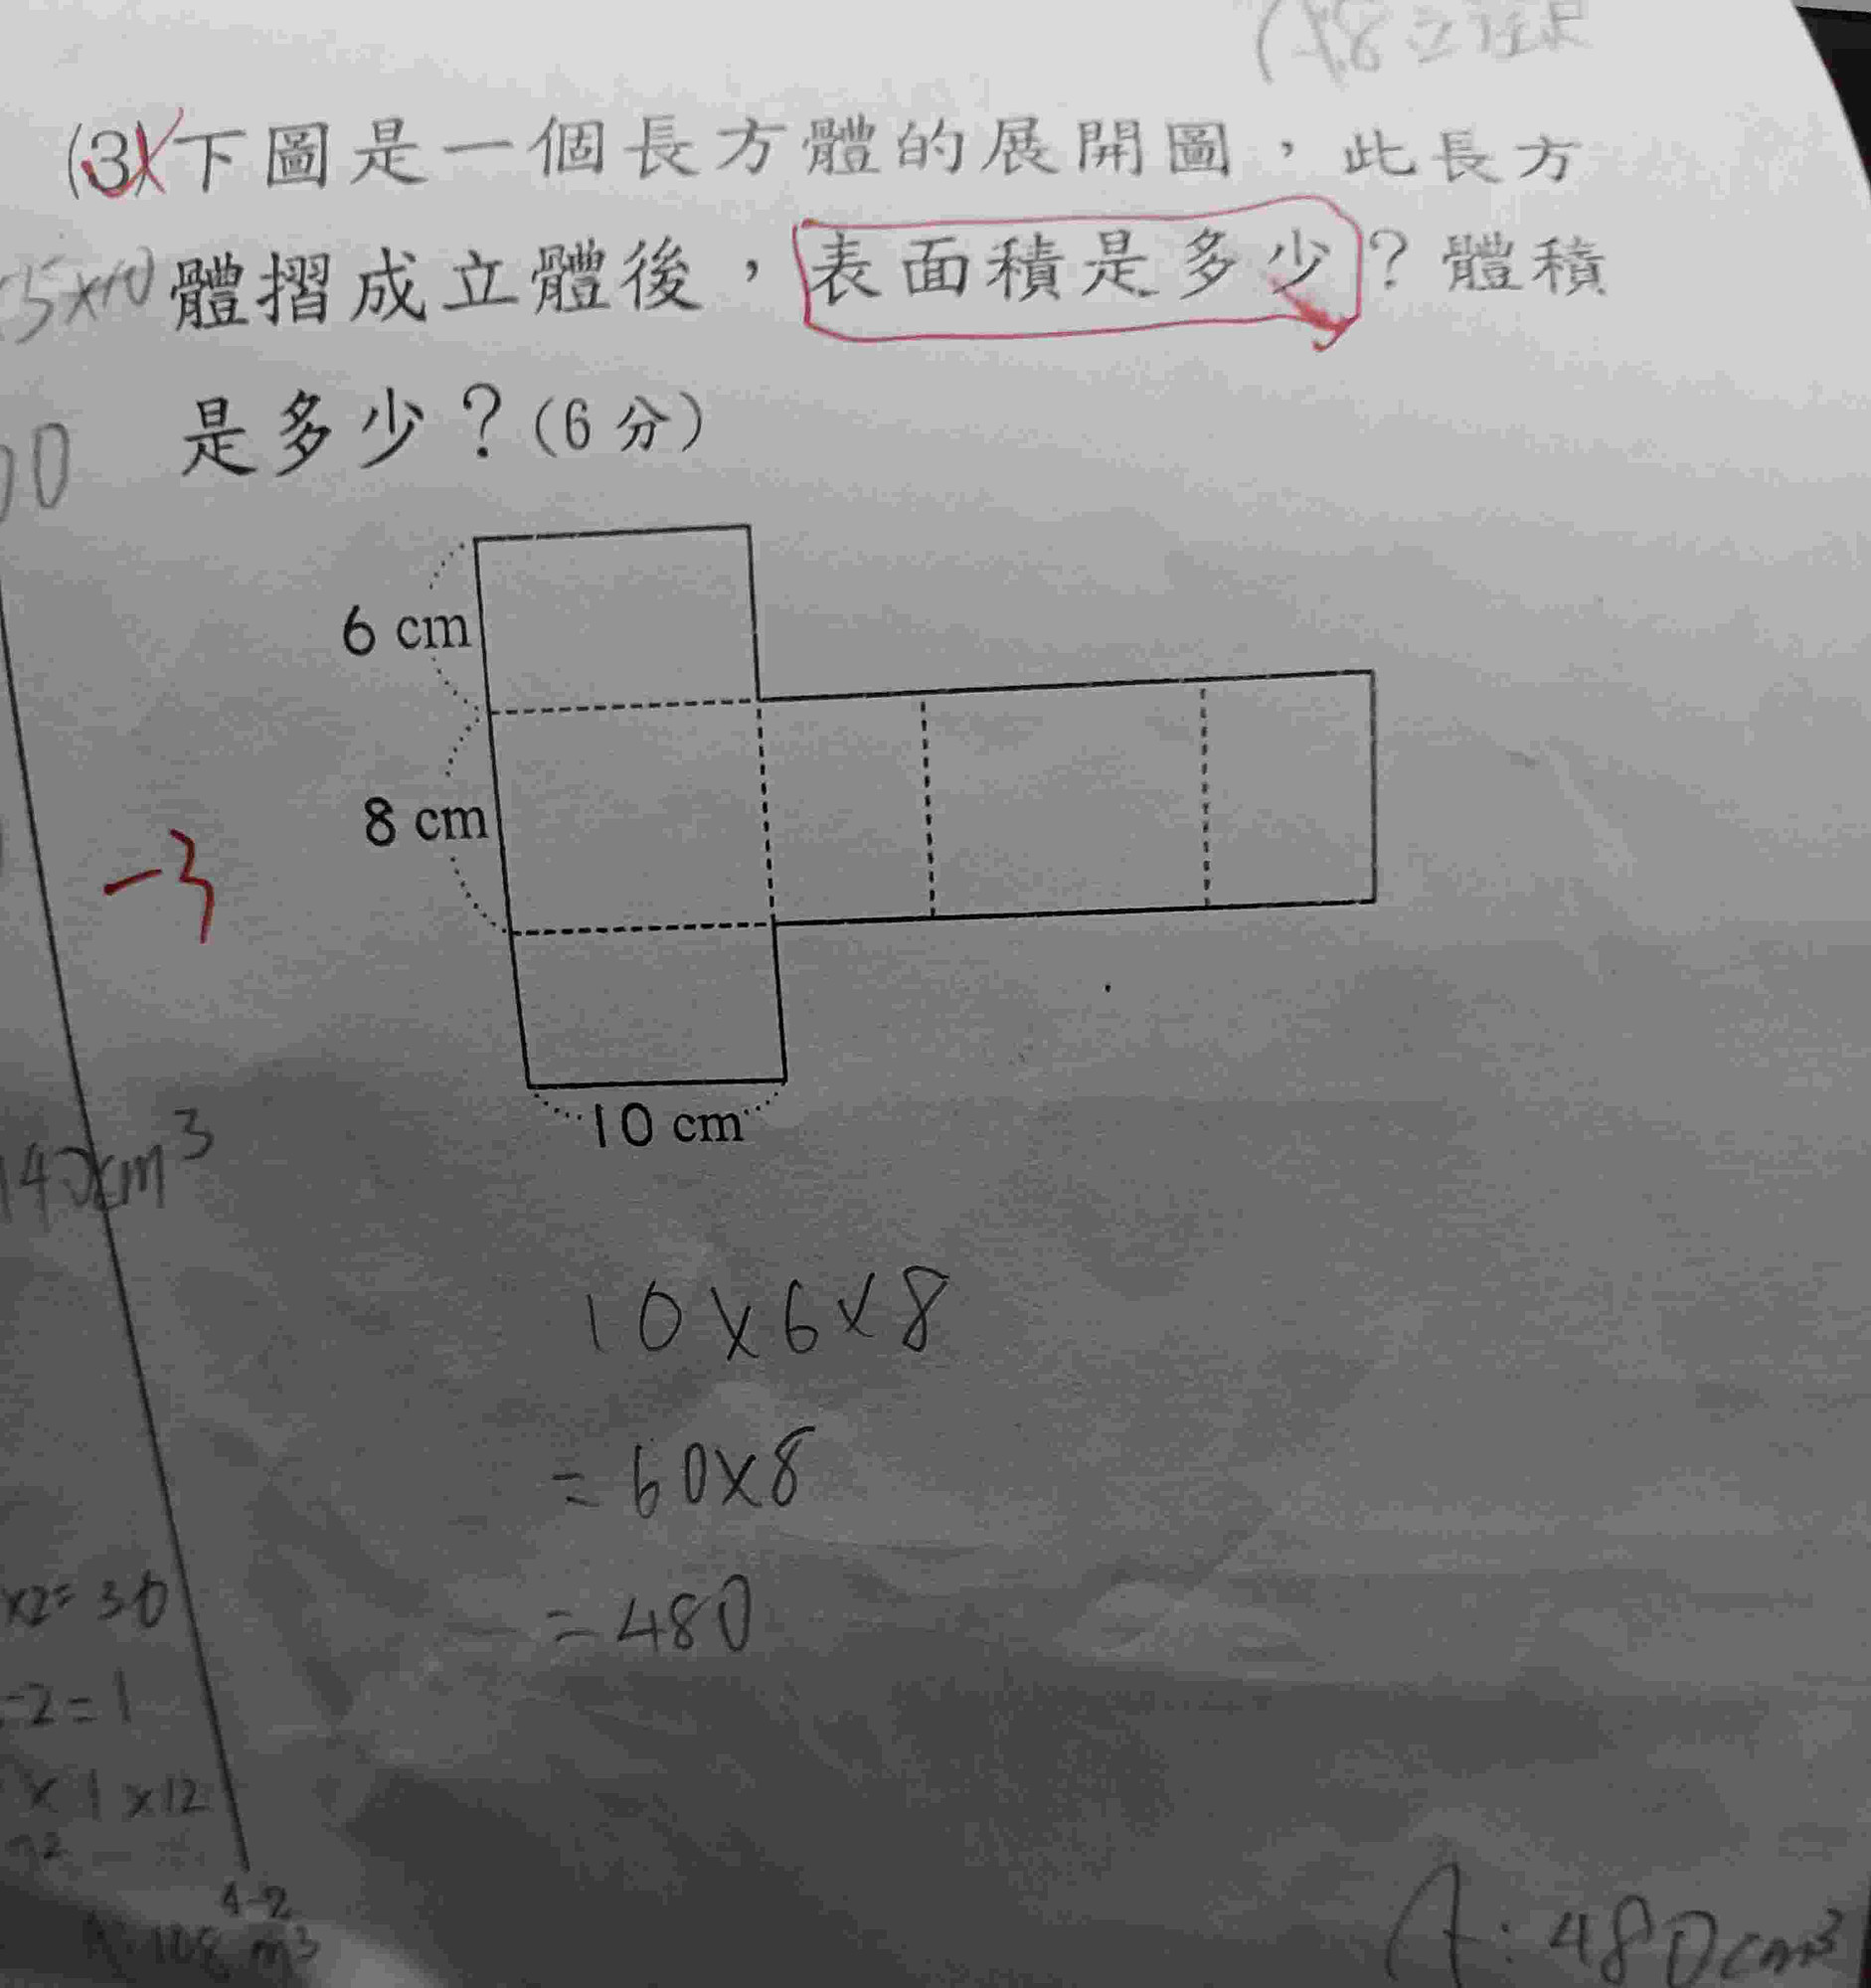 (3)下圖是一個長方體的展開圖，此長方
5×10
體摺成立體後，表面積是多少？體積
0
是多少？(6分)
6 cm
8 cm
-3
10 cm
140cm³
10×6×8
=60×8
=480
×2=30
-2=1
×1×12
4-2
108 m³
A:480cm³